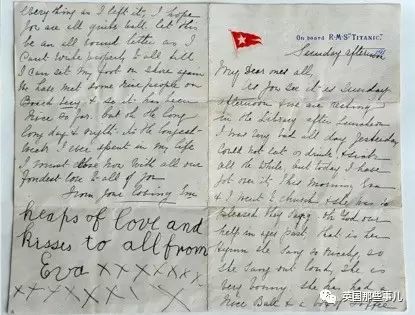 On board R.M.S "TITANIC."
Sunday afternoon
My Dear ones all,
As you see it is Sunday
afternoon & we are resting
in the library after luncheon
I was very bad all day yesterday
Could not eat or drink & sick
all the while, but today I have
got over it This morning Eva
& I went Church & she was so
pleased they sang Oh God our
help in ages past that is her
Hymn she sang so nicely, so
She sang out loud, she is
very bonny. she has had a
nice Ball & a box of Toffee
everything as I left it, I hope
you are all quite well let this
be an all round letter as I
Can't write properly to all till
I can set my foot on shore again
We have met some nice people on
Board Lucy & so it has been
nice so far. but oh the long
long day & nights its the longest
break I ever spent in my life
I must close now with all our
Fondest love to all of you
From your loving Em
heaps of love and
kisses to all from
Eva xxxxxxxx
xxxxxxxx
英国那些事儿